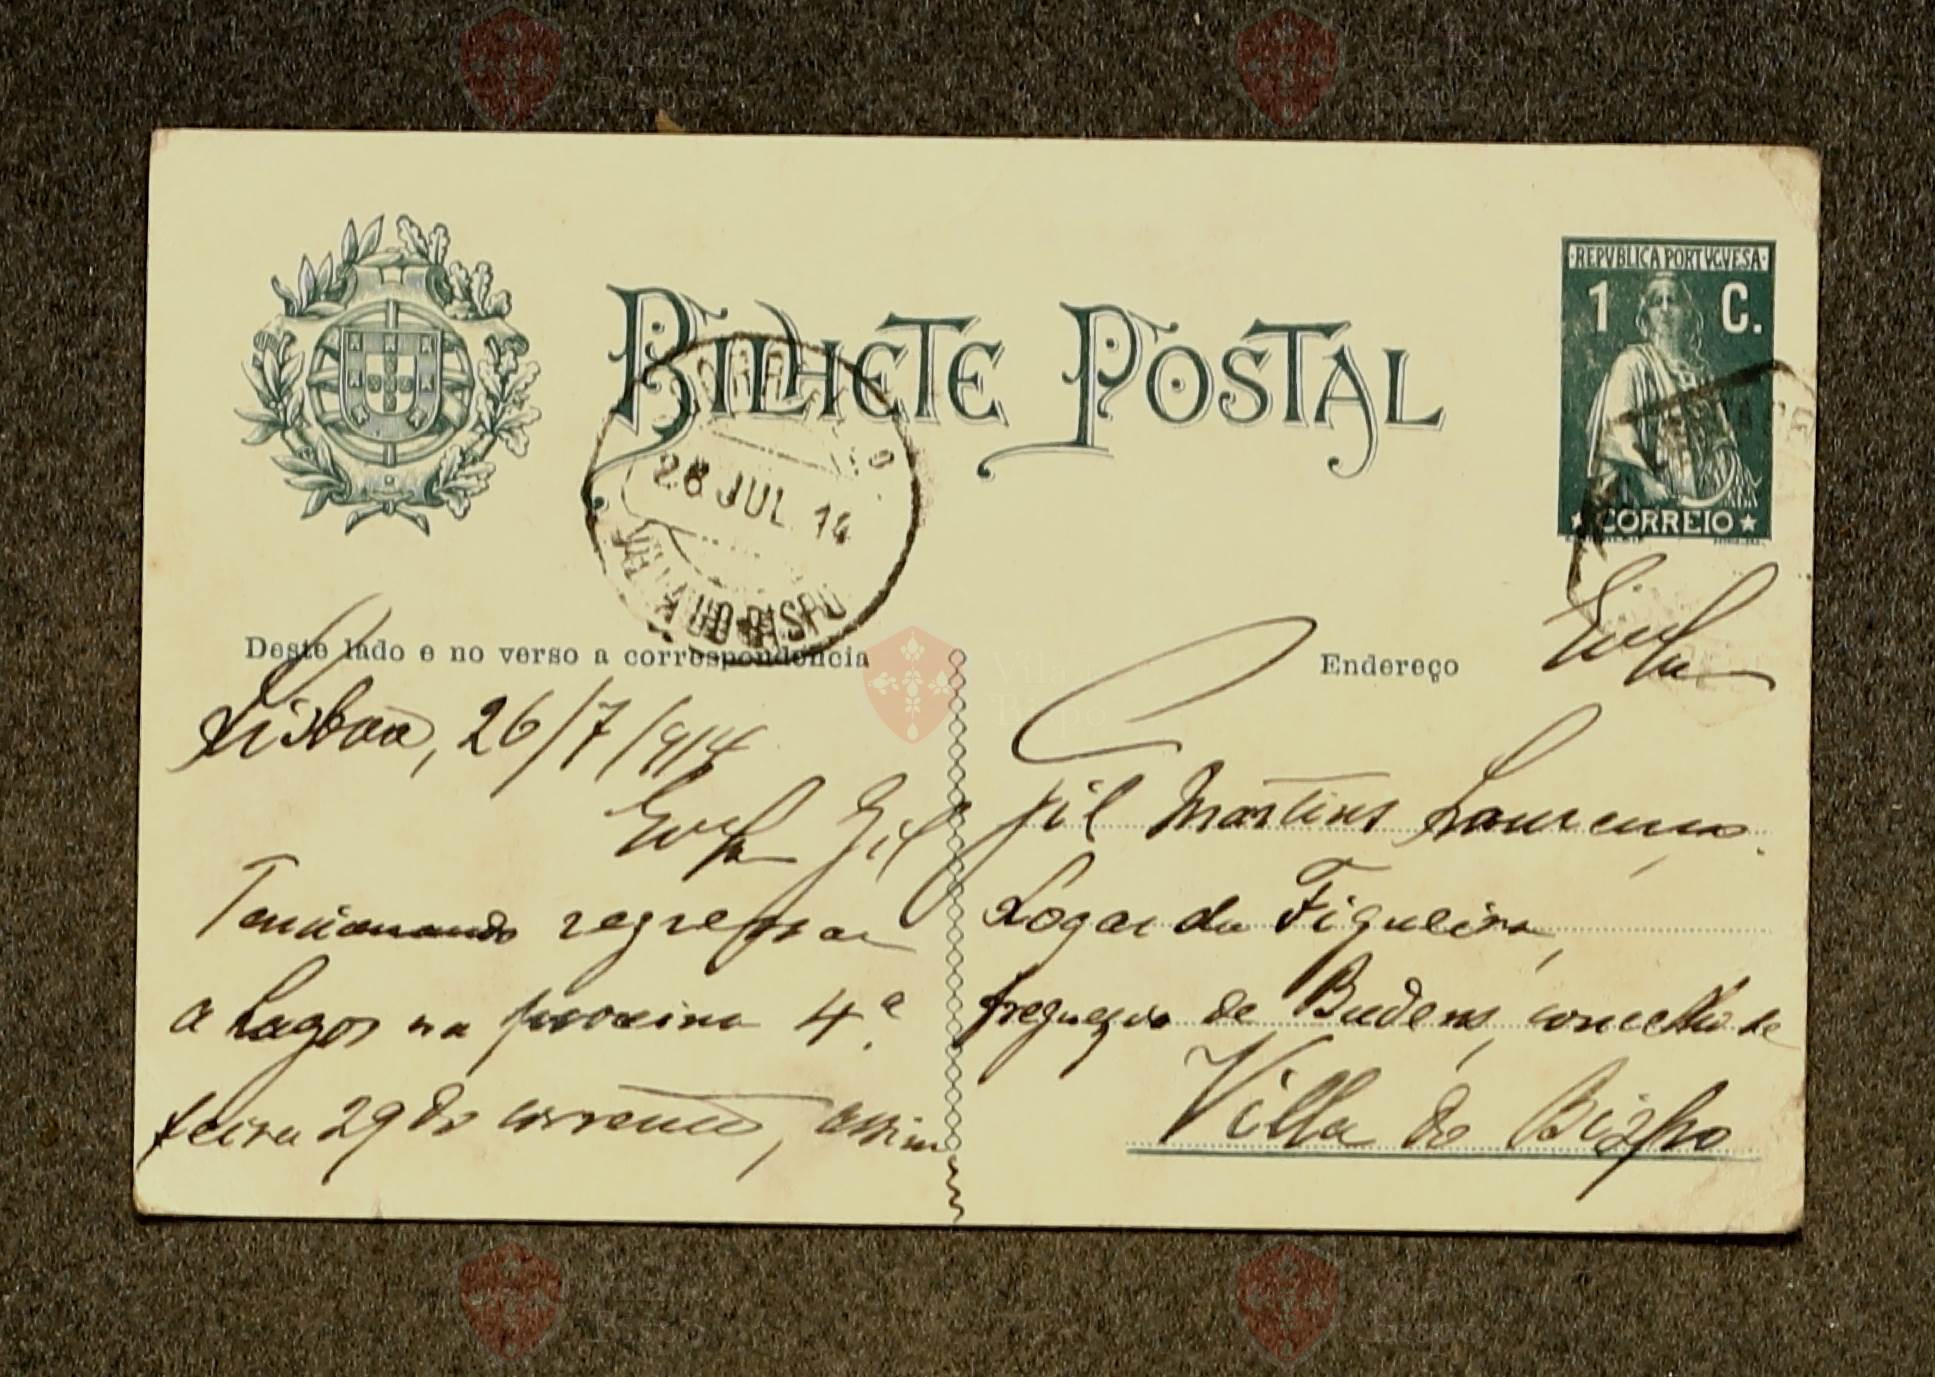 BILHETE POSTAL
REPVBLICA PORTVGVESA
1 C.
CORREIO
28 JUL 14
VILLA DO BISPO
Deste lado e no verso a correspondencia
Endereço
Lisboa, 26/7/914
Gil
Tencionando regressar
a Lagos na proxima 4.ª
feira 29 do corrente, assim
Gil Martins Lourenço.
Logar da Figueira,
freguezia de Budens, concelho de
Villa do Bispo
Vila do Bispo